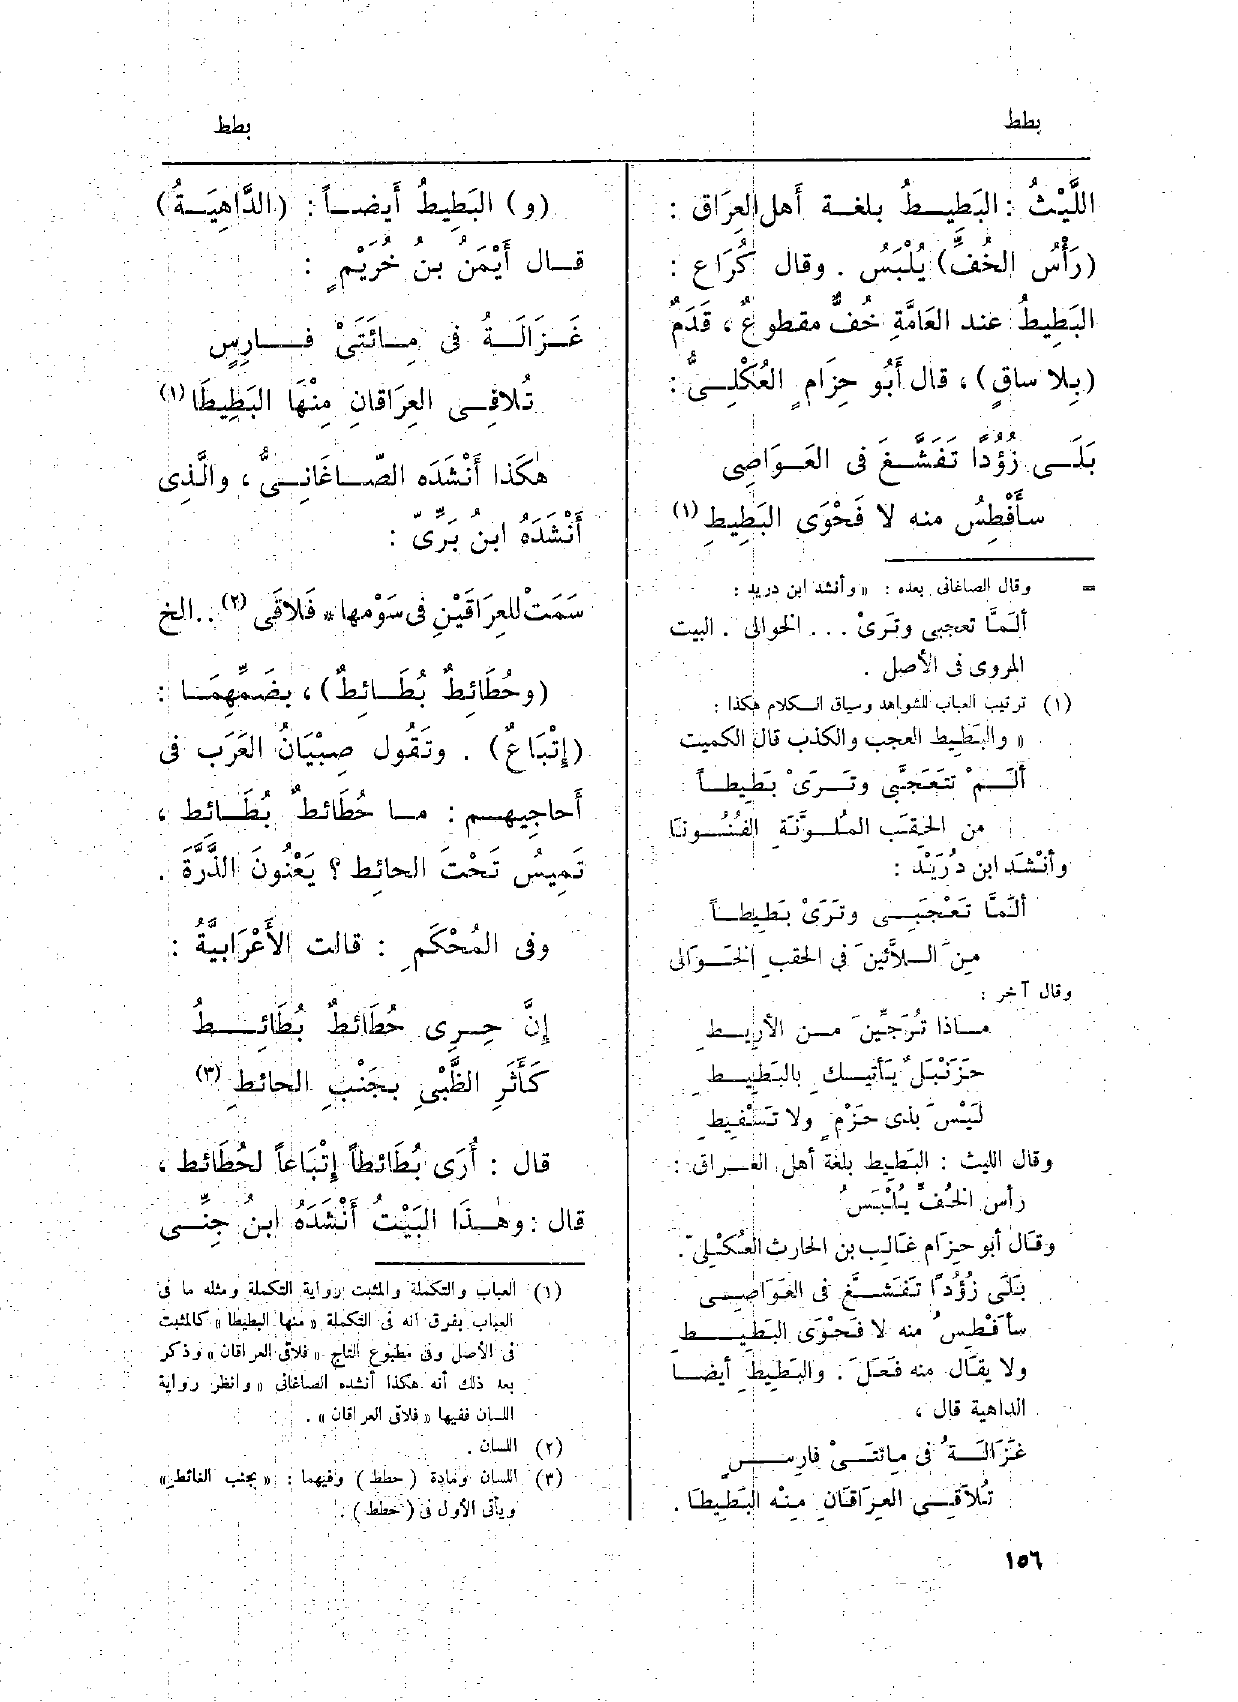 بطط
بطط
اللَّيْثُ : البَطِيطُ بلغة أَهل العِرَاق :
(رَأْسُ الخُفِّ) يُلْبَسُ . وقال كُرَاع :
البَطِيطُ عند العَامَّةِ خُفٌّ مقطوعٌ ، قَدَمٌ
(بِلا ساقٍ) ، قال أَبُو حِزَامٍ العُكْلِىُّ :
بَلَى زُؤُدًا تَفَشَّغَ فى العَوَاصِى
سأَفْطِسُ منه لا فَحْوَى البَطِيطِ (١)
= وقال الصاغانى بعده : « وأنشد ابن دريد :
ألَمَّا تعجبى وتَرىْ ... الخوالى . البيت
المروى فى الأصل .
(١) ترتيب العباب للشواهد وسياق الكلام هكذا :
« والبَطيط العجب والكذب قال الكميت
أَلَمْ تتَعَجَّبى وتَرَىْ بَطِيطاً
من الحِقَبِ المُلَوَّنَةِ الفُنُونَا
وأَنْشَد ابن دُرَيْد :
ألَمَّا تَعْجَبِى وتَرَىْ بَطِيطاً
مِنَ اللاَّئينَ فى الحقبِ الخَوالى
وقال آخر :
ماذا تُرَجِّينَ من الأرِيطِ
حَزَنْبَلٍ يأتيكِ بالبَطِيطِ
لَيْسَ بذى حَزْمٍ ولا سَفِيطِ
وقال الليث : البَطيط بلغة أهل العراق :
رأس الخُفِّ يُلْبَسُ
وقال أبو حِزام غالِب بن الحارث العُكْلِىّ .
بَلَى زُؤُدًا تَفَشَّغَ فى العَوَاصِى
سأفْطِسُ منه لا فَحْوَى البَطِيطِ
ولا يقال منه فَعَلَ . والبَطيطُ أيضا
الداهية قال ،
غَزَالَةُ فى مِائتَىْ فارِسٍ
تُلاَقِى العِرَاقَانِ مِنْه البَطِيطَا .
(و) البَطِيطُ أَيضاً : (الدَّاهِيَةُ)
قال أَيْمَنُ بنُ خُرَيْمٍ :
غَزَالَةُ فى مِائَتَىْ فارِسٍ
تُلاقِى العِرَاقانِ مِنْهَا البَطِيطَا (١)
هٰكَذا أَنْشَدَه الصّاغَانِىُّ ، والَّذِى
أَنْشَدَهُ ابنُ بَرِّىّ :
سَمَتْ للعِرَاقَيْنِ فى سَوْمِها * فَلاقَى (٢) .. الخ
(وحُطَائطٌ بُطَائطٌ) ، بضَمِّهِمَا :
(إِتْبَاعٌ) . وتَقُول صِبْيَانُ العَرَب فى
أَحاجِيهم : ما حُطَائطٌ بُطَائط ،
تَمِيسُ تَحْتَ الحائط ؟ يَعْنُونَ الذَّرَّةَ .
وفى المُحْكَمِ : قالت الأَعْرَابيَّةُ :
إِنَّ حِرِى حُطَائطٌ بُطَائِطُ
كَأَثَرِ الظَّبْىِ بجَنْبِ الحائطِ (٣)
قال : أُرَى بُطَائطاً إِتْبَاعاً لحُطَائط ،
قال : وهٰذا البَيْتُ أَنْشَدَهُ ابنُ جِنِّى
(١) العباب والتكملة والمثبت رواية التكملة ومثله ما فى
العباب بفرق أنه فى التكملة « منها البطيطا » كالمثبت
فى الأصل وفى مطبوع التاج « فلاقى العراقان » وذكر
بعد ذلك أنه هكذا أنشده الصاغانى « وانظر رواية
اللسان ففيها « فلاقى العراقان » .
(٢) اللسان .
(٣) اللسان ومادة (حطط) وفيهما : « بجنب الغائط »
ويأتى الأول فى (حطط) .
١٥٦